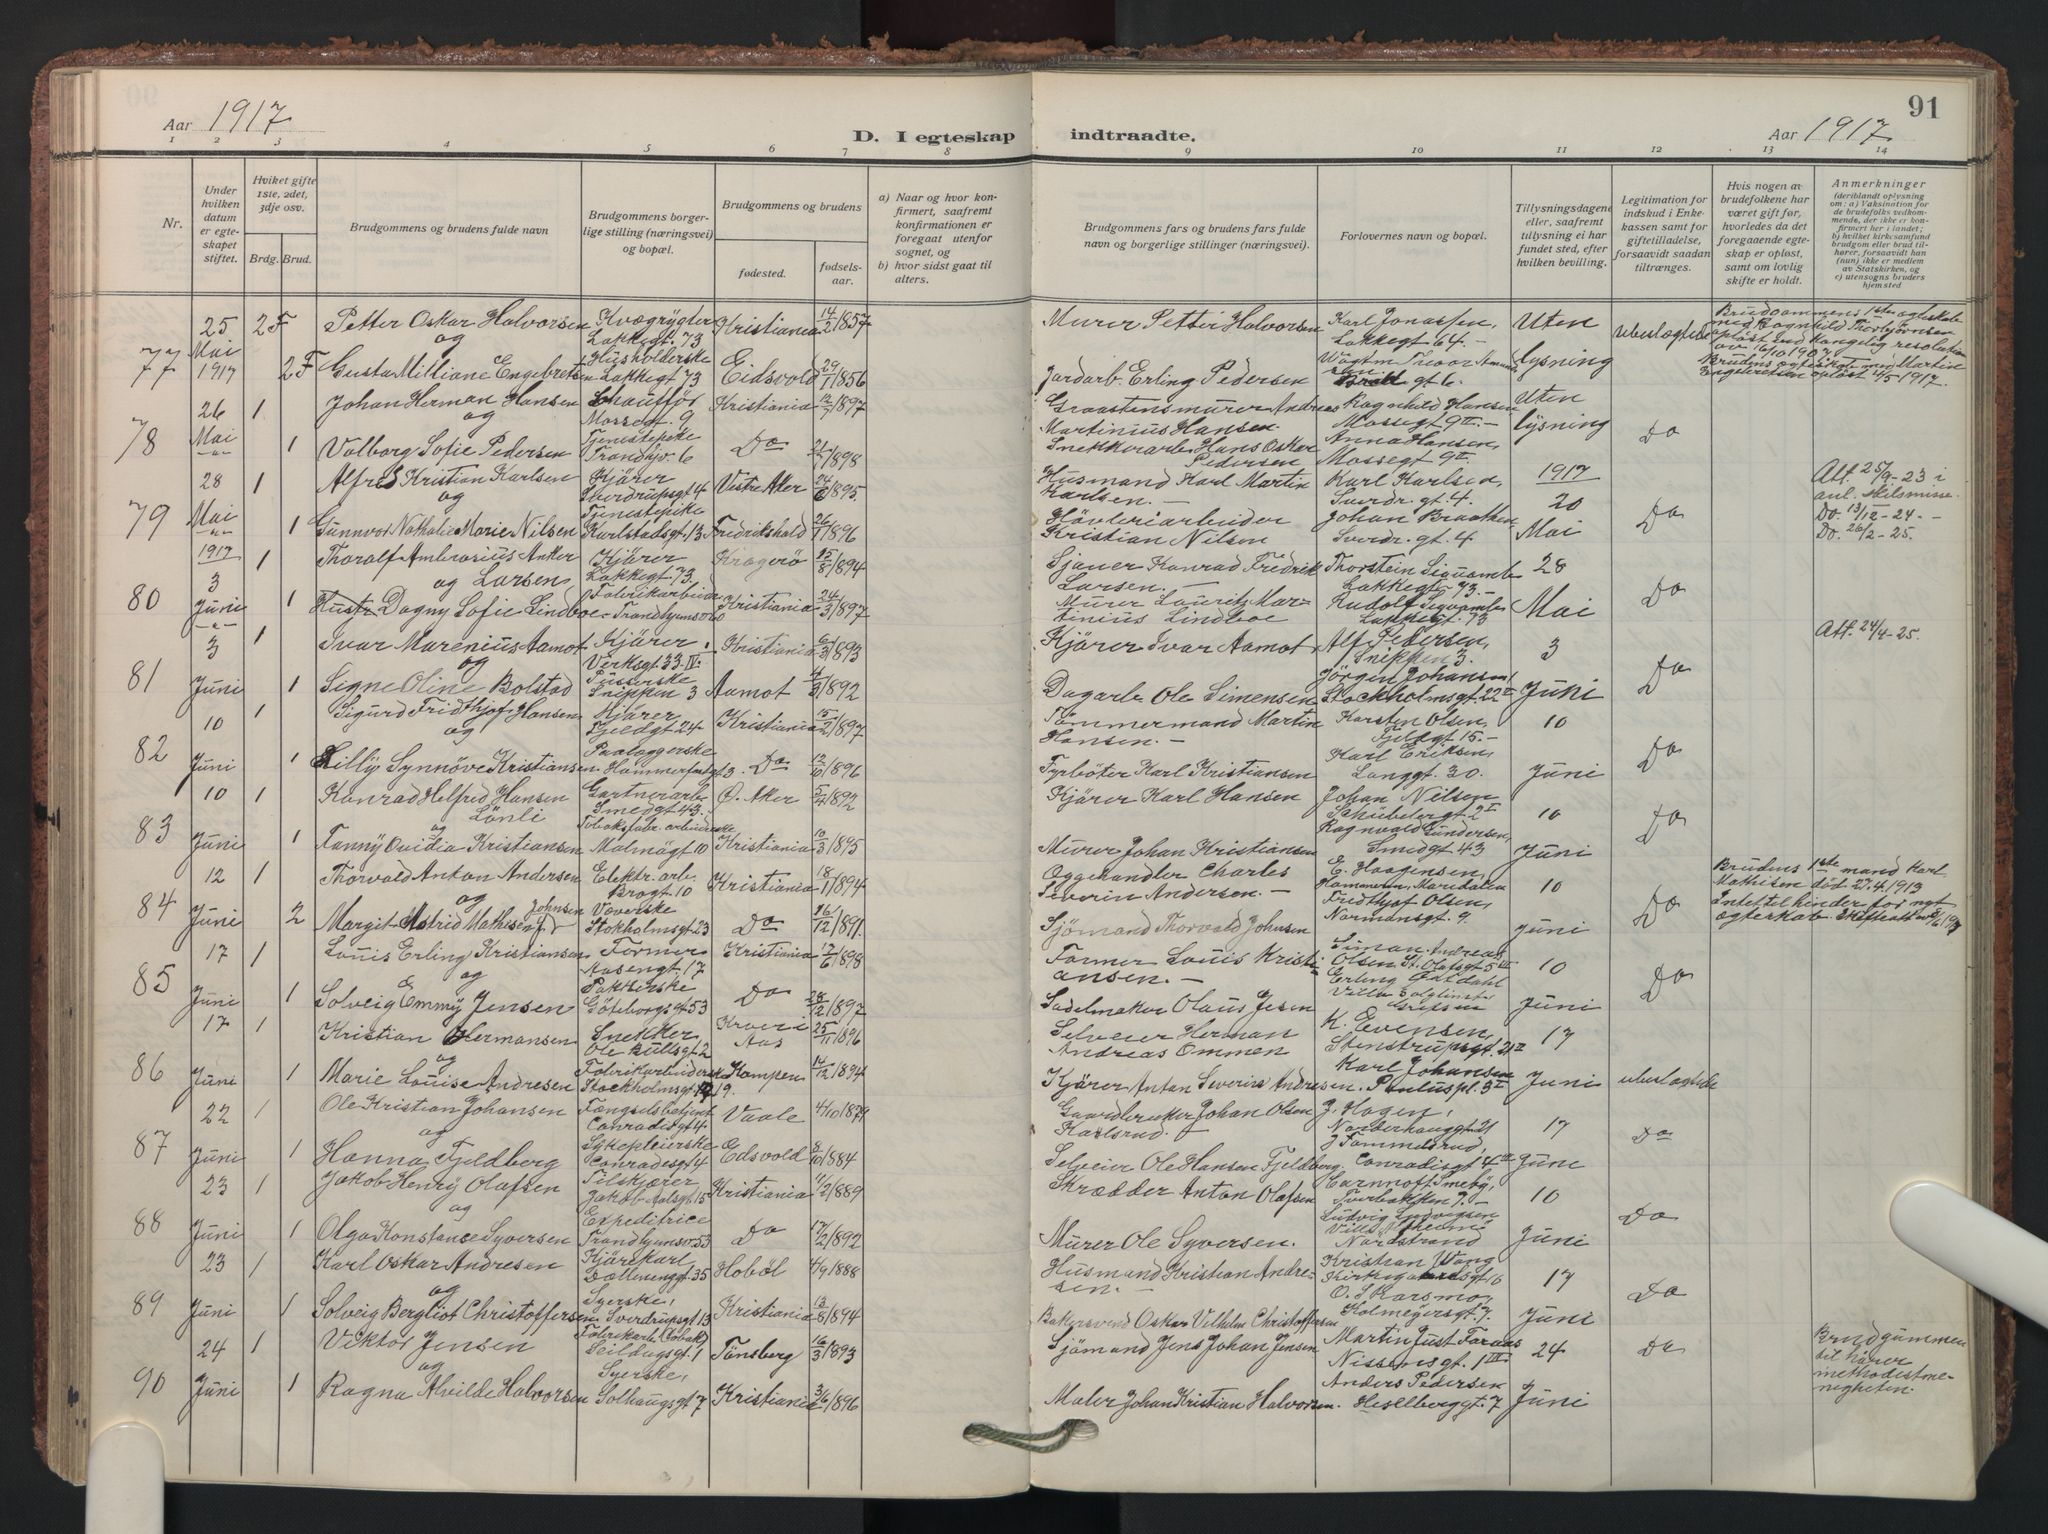 91
Aar 1917
D. I egteskap indtraadte.
Aar 1917
1 2 3 4 5 6 7 8 9 10 11 12 13 14
Nr.
Under hvilken datum er egteskapet stiftet.
Hviket gifte 1ste, 2det, 3dje osv.
Brdg. Brud.
Brudgommens og brudens fulde navn
Brudgommens borgerlige stilling (næringsvei) og bopæl.
Brudgommens og brudens
fødested.
fødselsaar.
a) Naar og hvor konfirmert, saafremt konfirmationen er foregaat utenfor sognet, og
b) hvor sidst gaat til alters.
Brudgommens fars og brudens fars fulde navn og borgerlige stillinger (næringsvei).
Forlovernes navn og bopæl.
Tillysningsdagene eller, saafremt tillysning ei har fundet sted, efter hvilken bevilling.
Legitimation for indskud i Enkekassen samt for giftetilladelse, forsaavidt saadan tiltrænges.
Hvis nogen av brudefolkene har været gift før, hvorledes da det foregaaende egteskap er opløst, samt om lovlig skifte er holdt.
Anmerkninger
(deriblandt oplysning om: a) Vaksination for de brudefolks vedkommende, der ikke er konfirmert her i landet; b) hvilket kirkesamfund brudgom eller brud tilhører, forsaavidt han (hun) ikke er medlem av Statskirken, og c) utensogns bruders hjemsted
77 25 Mai 1917 2F Petter Oskar Halvorsen Kvægrygter Lakkegt 73 Kristiania 14/2 1857 Murer Petter Halvorsen Karl Jonassen, Lakkegt 64.- Uten lysning ubeslægtede
og
2F Gusta Milliane Engebretsen Husholderske Lakkegt 73 Eidsvold 29/1 1856 Jordarb. Erling Pedersen
Brudgommens 1ste egteskab med Ragnhild Thorbjörnsen oplöst ved kongelig resolution av 16/10 1907. Brudens egteskab med Martin Engebretsen oplöst 4/5 1917.
78 26 Mai 1 Johan Herman Hansen Chaufför Mossegt. 9 Kristiania 12/7 1897 Graastensmurer Andreas Martinius Hansen. Ragnhild Hansen Mossegt 9 II. Uten lysning Do
og
1 Valborg Sofie Pedersen Tjenestepike Trondhjv. 6 Do 1898 Snekkerarb. Hans Oskar Pedersen Anna Hansen, Mossegt 9 II
79 28 Mai 1 Alfred Kristian Karlsen Kjärer Sverdrupsgt 4 Vestre Aker 1895. Husmand Karl Martin Karlsen.- Karl Karlsen, Sverdr. gt. 4. 1917 20 Mai Do Att. 25/9-23 i anl. skilsmisse. Do. 13/12-24.- Do. 26/2-25.
og
1 Gunnvor Nathalie Marie Nilsen Tjenestepike Karlstadsgt. 13 Fredrikshald 26/1 1896 Hövleriarbeider Kristian Nilsen Johan Braathen Sverdr. gt. 4
80 1917 3 Juni 1 Thoralf Ambrosius Anker Larsen, Kjärer Lakkegt. 73. Kragerö 15/8 1894 Sjauer Konrad Fredrik Larsen.- Thorstein Lakkegt. 73.- 28 Mai Do
og
1 Dagny Sofie Lindboe Fabrikarbeider Trondhjemsv. Kristiania 24/3 1897 Murer Lauritz Martinius Lindboe Rudolf Lakkegt. 73
81 3 Juni 1 Ivar Marenius Aamot Kjärer Verksgt. 33. IV. Kristiania 6/3 1893 Kjärer Ivar Aamot Alf Pedersen, Snippen 3. 3 Juni Do Att. 24/4-25.
og
1 Signe Oline Bolstad Pusserske Snippen 3 Aamot 1892 Dagarb. Ole Simensen Jörgen Johansen, Stockholmsgt. 22 II
82 10 Juni 1 Sigurd Fridthjof Hansen Kjärer Fjeldgt 24 Kristiania 15/2 1897 Tömmermand Martin Hansen.- Karsten Olsen, Fjeldgt 15.- 10 Juni Do
og
1 Lilly Synnöve Kristiansen Paalæggerske Hammerfestgt 3. Do 12/10 1896 Fyrböter Karl Kristiansen Karl Eriksen, Langgt. 30.
83 10 Juni 1 Konrad Helfred Hansen Lönli Gartnerarb. Smedgt 43. Ø. Aker 5/4 1892 Kjärer Karl Hansen Johan Nilsen Schübelergt 2 I 10 Juni Do
og
1 Fanny Ovidia Kristiansen Tobaksfabr. arbeiderske, Malmögt 10 Kristiania 10/3 1895 Murer Johan Kristiansen Ragnvald Gundersen, Smedgt 43
84 12 Juni 1 Thorvald Anton Andersen Elektr. arb. Brogt. 10 Kristiania 18/1 1894 Oggehandler Charles Severin Andersen.- E. Haagensen, Hammeren, Maridalen 10 Juni Do
og
2 Margit Astrid Mathisen f. Johnsen Væverske Stokholmsgt 23 Do 16/12 1891. Sjömand Thorvald Johnsen Fridthjof Olsen, Normansgt. 9
Brudens 1ste mand Karl Mathisen död 27.4.1913 Intet til hinder for nyt ægteskab.
85 17 Juni 1 Louis Erling Kristiansen Former Aasengt. 17 Kristiania 17/6 1898 Former Louis Kristiansen.- Simon Andreas Olsen St. Olafsgt 5 III 10 Juni Do
og
1 Solveig Emmy Jensen Pakkerske Göteborgsgt 53 Do 28/12 1897 Sadelmaker Olaus Jesen Erling
86 17 Juni 1 Kristian Hermansen Snekker Ole Bullsgt 2 Kroer i Aas 25/11 1896 Selveier Herman Andreas Ommen K. Evensen, Stenstrupsgt. 21 II 17 Juni ubeslægtede
og
1 Marie Louise Andresen Fabrikarbeiderske Stockholmsgt 19. Kampen 14/12 1894 Kjärer Anton Severin Andresen. Karl Johansen Pauluspl. 3 I
87 22 Juni 1 Ole Kristian Johansen Fængselsbetjent Conradisgt. 4 Vaale 4/10 1879 Gaardbruker Johan Olsen Karlsrud.- J. Hagen, Norderhauggt 21 17 Juni Do
og
1 Hanna Fjeldberg Sykepleierske Conradisgt 4 Edsvold 8/10 1884 Selveier Ole Hansen Fjeldberg. J Tømmelsrud, Conradisgt. 4
88 23 Juni 1 Jakob Henry Olafsen Tilskjærer Jakob Aalsgt. 15 Kristiania 11/2 1889 Skrædder Anton Olafsen Smeby, Tverbakken 9.- 10 Juni Do
og
1 Olga Konstanse Syversen Expeditrice Trondhjemsv. 53 Do 17/2 1892 Murer Ole Syversen. Ludvig Ludvigsen Villa Nordstrand
89 23 Juni 1 Karl Oskar Andresen Kjörekarl Dællenenggt. 35 Hoböl 4/9 1888 Husmand Kristian Andresen.- Kristian Wang Kirkegaardsgt 16 17 Juni Do
og
1 Solveig Bergliot Christoffersen Syerske, Sverdrupsgt. 13 Kristiania 13/8 1894 Bakersvend Oskar Vilhelm Christoffersen O. S. Karsmo, Holmeyersgt. 7.
90 24 Juni 1 Viktor Jensen Fabrikarb. (Tobak) Seildugsgt. 1 Tönsberg 16/3 1893 Sjömand Jens Johan Jensen Martin Just Foraas Nissensgt. 1 III 24 Juni Do Brudgummen tilhörer methodistmenigheten.
og
1 Ragna Alvilde Halvorsen Syerske, Solhaugsgt 7 Kristiania 3/6 1896 Maler Johan Kristian Halvorsen. Anders Pedersen Heselberggt. 7